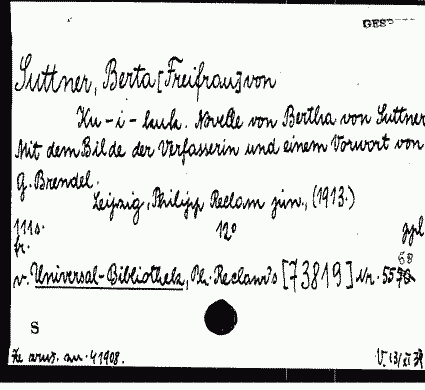 Suttner, Berta [Freifrau] von
Ku-i-kuk. Novelle von Bertha von Suttner
Mit dem Bilde der Verfasserin und einem Vorwort von
G. Brendel.
Leipzig, Philipp Reclam jun., (1913.)
111 s. 12°
fr.
68
v. Universal-Bibliothek, Ph. Reclam's [73819] Nr. 5570
S